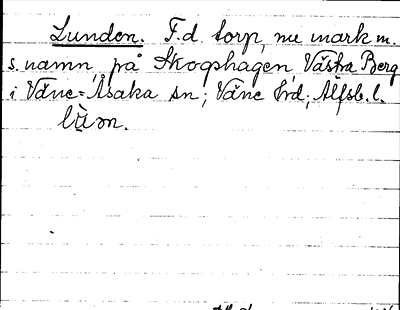 Lunden. F.d. torp, nu mark m.
s. namn, på Skogshagen, Västra Berg
i Väne-Åsaka sn; Väne hd; Älfsb. l.